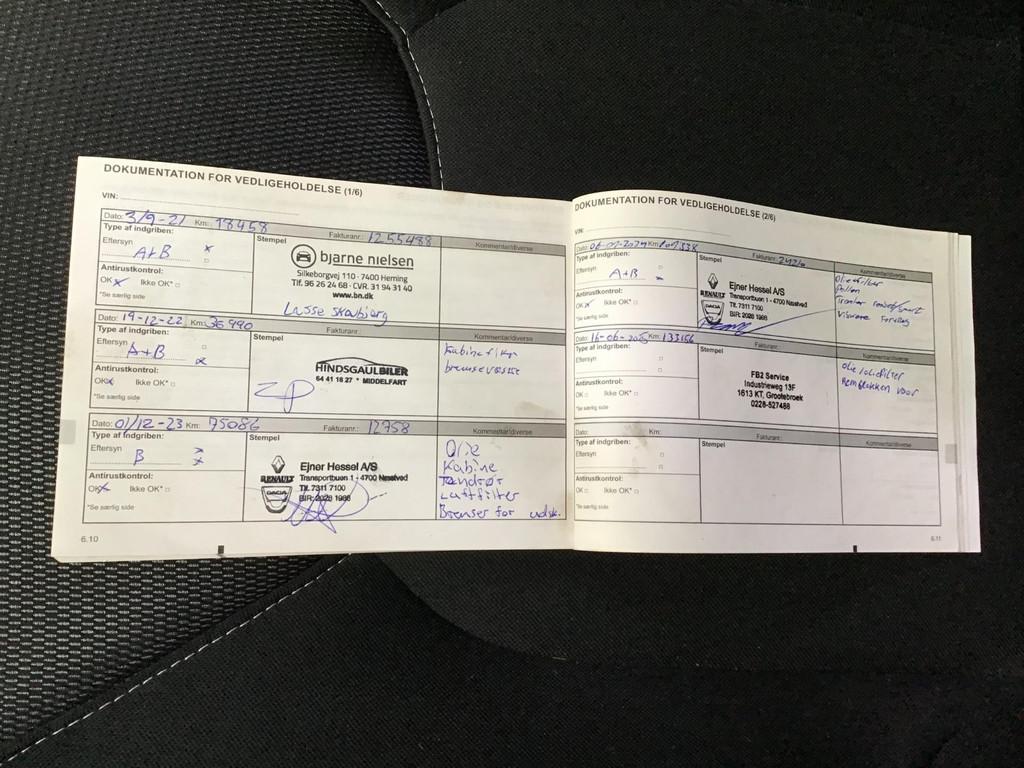 DOKUMENTATION FOR VEDLIGEHOLDELSE (1/6)
VIN:
Dato: 3/9-21 Km: 18458 Fakturanr.: 1255488 Kommentar/diverse
Type af indgriben:
Eftersyn
A+B
Antirustkontrol:
OK Ikke OK*
*Se særlig side
Stempel
bjarne nielsen
Silkeborgvej 110 · 7400 Herning
Tlf. 96 26 24 68 · CVR. 31 94 31 40
www.bn.dk
Lasse
Dato: 19-12-22 Km: 36990 Fakturanr.: Kommentar/diverse
Type af indgriben:
Eftersyn
A+B
Antirustkontrol:
OK Ikke OK*
*Se særlig side
Stempel
HINDSGAULBILER
64 41 18 27 * MIDDELFART
Kabinefilter
bremsevæske
Dato: 01/12-23 Km: 75086 Fakturanr.: 12758 Kommentar/diverse
Type af indgriben:
Eftersyn
B
Antirustkontrol:
OK Ikke OK*
*Se særlig side
Stempel
RENAULT
DACIA
Ejner Hessel A/S
Transportbuen 1 - 4700 Næstved
Tlf. 7311 7100
BIR: 2028 1988
Olie
Kabine
Tændrør
Luftfilter
Bremser for udsk.
6.10
DOKUMENTATION FOR VEDLIGEHOLDELSE (2/6)
VIN:
Km: Fakturanr.: 2426 Kommentar/diverse
Type af indgriben:
Eftersyn
A+B
Antirustkontrol:
OK Ikke OK*
*Se særlig side
Stempel
RENAULT
DACIA
Ejner Hessel A/S
Transportbuen 1 - 4700 Næstved
Tlf. 7311 7100
BIR: 2028 1988
Oliefilter
Pollen
Dato: 16-06-2025 Km: 133156 Fakturanr.: Kommentar/diverse
Type af indgriben:
Eftersyn
Antirustkontrol:
OK Ikke OK*
*Se særlig side
Stempel
FB2 Service
Industrieweg 13F
1613 KT, Grootebroek
0228-527488
olie/oliefilter
Remblokken voor
Dato: Km: Fakturanr.: Kommentar/diverse
Type af indgriben:
Eftersyn
Antirustkontrol:
OK Ikke OK*
*Se særlig side
Stempel
6.11